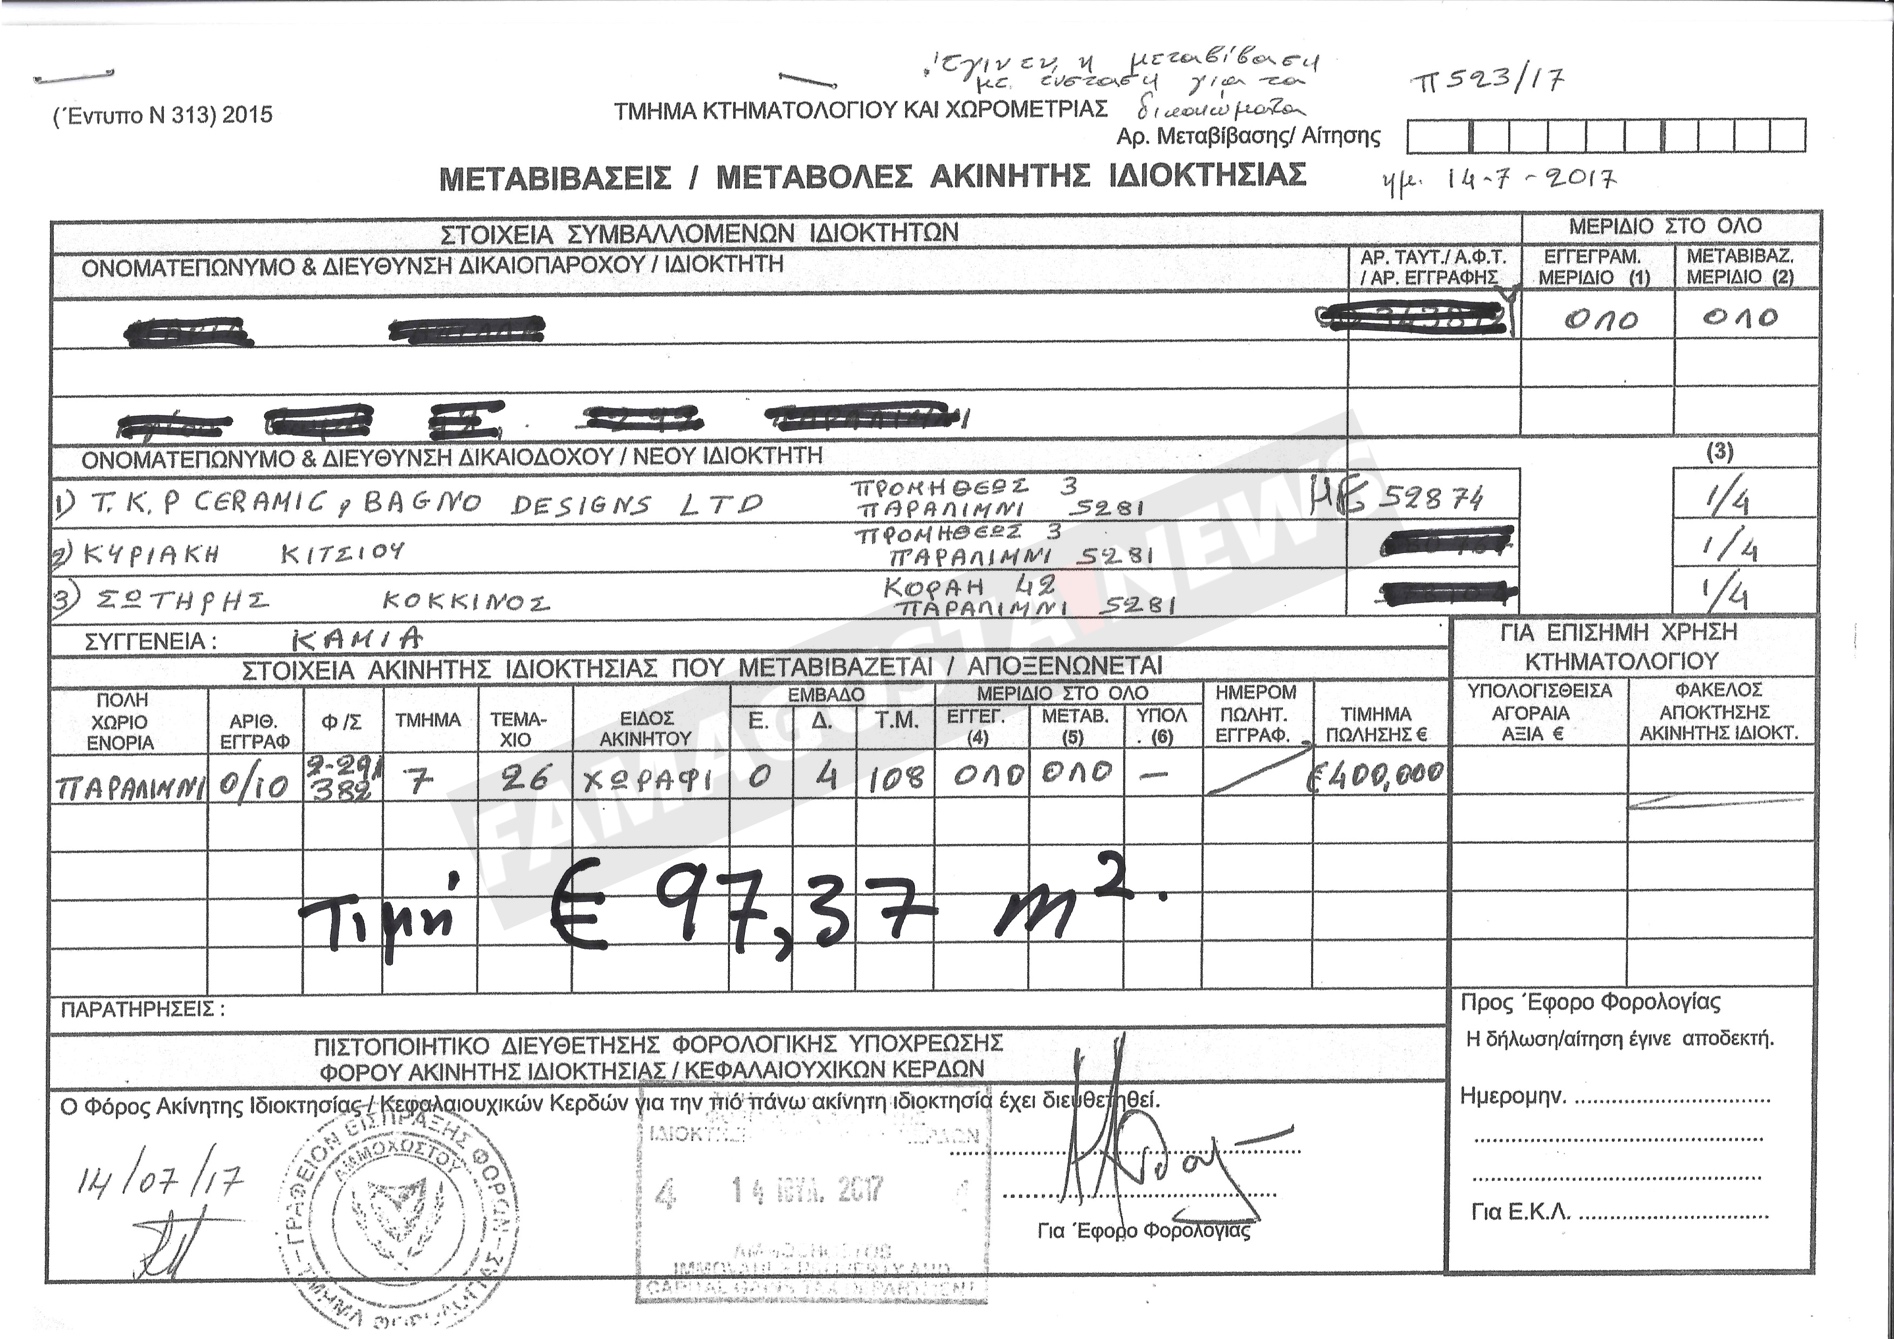 Έγινεν η μεταβίβαση
με ένσταση για τα
δικαιώματα
Π523/17
(Έντυπο Ν 313) 2015
ΤΜΗΜΑ ΚΤΗΜΑΤΟΛΟΓΙΟΥ ΚΑΙ ΧΩΡΟΜΕΤΡΙΑΣ
Αρ. Μεταβίβασης/ Αίτησης
ΜΕΤΑΒΙΒΑΣΕΙΣ / ΜΕΤΑΒΟΛΕΣ ΑΚΙΝΗΤΗΣ ΙΔΙΟΚΤΗΣΙΑΣ
ημ. 14-7-2017
ΣΤΟΙΧΕΙΑ ΣΥΜΒΑΛΛΟΜΕΝΩΝ ΙΔΙΟΚΤΗΤΩΝ
ΜΕΡΙΔΙΟ ΣΤΟ ΟΛΟ
ΟΝΟΜΑΤΕΠΩΝΥΜΟ & ΔΙΕΥΘΥΝΣΗ ΔΙΚΑΙΟΠΑΡΟΧΟΥ / ΙΔΙΟΚΤΗΤΗ
ΑΡ. ΤΑΥΤ./ Α.Φ.Τ. / ΑΡ. ΕΓΓΡΑΦΗΣ
ΕΓΓΕΓΡΑΜ. ΜΕΡΙΔΙΟ (1)
ΜΕΤΑΒΙΒΑΖ. ΜΕΡΙΔΙΟ (2)
ΟΛΟ ΟΛΟ
ΟΝΟΜΑΤΕΠΩΝΥΜΟ & ΔΙΕΥΘΥΝΣΗ ΔΙΚΑΙΟΔΟΧΟΥ / ΝΕΟΥ ΙΔΙΟΚΤΗΤΗ
(3)
1) T.K.P CERAMIC, BAGNO DESIGNS LTD ΠΡΟΜΗΘΕΩΣ 3 ΠΑΡΑΛΙΜΝΙ 5281 ΗΕ 52874 1/4
2) ΚΥΡΙΑΚΗ ΚΙΤΣΙΟΥ ΠΡΟΜΗΘΕΩΣ 3 ΠΑΡΑΛΙΜΝΙ 5281 1/4
3) ΣΩΤΗΡΗΣ ΚΟΚΚΙΝΟΣ ΚΟΡΑΗ 42 ΠΑΡΑΛΙΜΝΙ 5281 1/4
ΣΥΓΓΕΝΕΙΑ : ΚΑΜΙΑ
ΓΙΑ ΕΠΙΣΗΜΗ ΧΡΗΣΗ
ΚΤΗΜΑΤΟΛΟΓΙΟΥ
ΣΤΟΙΧΕΙΑ ΑΚΙΝΗΤΗΣ ΙΔΙΟΚΤΗΣΙΑΣ ΠΟΥ ΜΕΤΑΒΙΒΑΖΕΤΑΙ / ΑΠΟΞΕΝΩΝΕΤΑΙ
ΠΟΛΗ ΧΩΡΙΟ ΕΝΟΡΙΑ
ΑΡΙΘ. ΕΓΓΡΑΦ
Φ /Σ
ΤΜΗΜΑ
ΤΕΜΑ-ΧΙΟ
ΕΙΔΟΣ ΑΚΙΝΗΤΟΥ
ΕΜΒΑΔΟ
Ε. Δ. Τ.Μ.
ΜΕΡΙΔΙΟ ΣΤΟ ΟΛΟ
ΕΓΓΕΓ. (4)
ΜΕΤΑΒ. (5)
ΥΠΟΛ . (6)
ΗΜΕΡΟΜ ΠΩΛΗΤ. ΕΓΓΡΑΦ.
ΤΙΜΗΜΑ ΠΩΛΗΣΗΣ €
ΥΠΟΛΟΓΙΣΘΕΙΣΑ ΑΓΟΡΑΙΑ ΑΞΙΑ €
ΦΑΚΕΛΟΣ ΑΠΟΚΤΗΣΗΣ ΑΚΙΝΗΤΗΣ ΙΔΙΟΚΤ.
ΠΑΡΑΛΙΜΝΙ 0/10 2-291/382 7 26 ΧΩΡΑΦΙ 0 4 108 ΟΛΟ ΟΛΟ — €400,000
Τιμή € 97,37 m².
ΠΑΡΑΤΗΡΗΣΕΙΣ :
Προς Έφορο Φορολογίας
Η δήλωση/αίτηση έγινε αποδεκτή.
Ημερομην.
Για Ε.Κ.Λ.
ΠΙΣΤΟΠΟΙΗΤΙΚΟ ΔΙΕΥΘΕΤΗΣΗΣ ΦΟΡΟΛΟΓΙΚΗΣ ΥΠΟΧΡΕΩΣΗΣ
ΦΟΡΟΥ ΑΚΙΝΗΤΗΣ ΙΔΙΟΚΤΗΣΙΑΣ / ΚΕΦΑΛΑΙΟΥΧΙΚΩΝ ΚΕΡΔΩΝ
Ο Φόρος Ακίνητης Ιδιοκτησίας / Κεφαλαιουχικών Κερδών για την πιό πάνω ακίνητη ιδιοκτησία έχει διευθετηθεί.
14/07/17
ΓΡΑΦΕΙΟΝ ΕΙΣΠΡΑΞΗΣ ΦΟΡΩΝ
ΑΜΜΟΧΩΣΤΟΥ
4 14 ΙΟΥΛ. 2017 4
IMMOVABLE PROPERTY AND
CAPITAL GAINS TAX DEPARTMENT
Για Έφορο Φορολογίας
FAMAGUSTA.NEWS